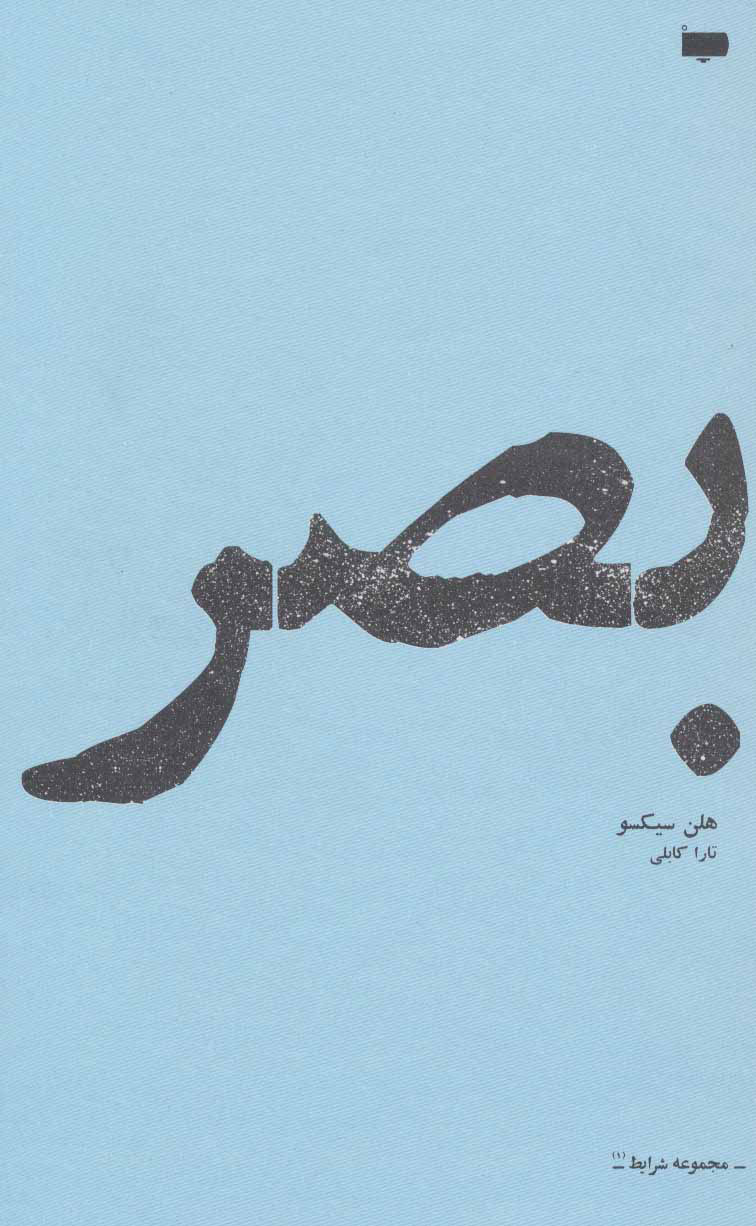 بصر
هلن سیکسو
تارا کابلی
ــ مجموعه شرایط (۱) ــ